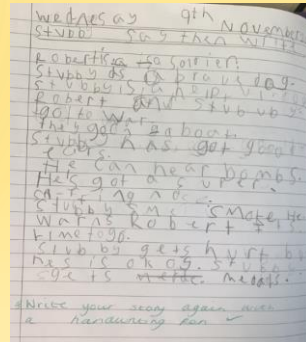 Wednesday 9th November
Stubby say then write
Robert is a soldier.
Stubby is a brave dog.
Stubby is a
Robert and Stubby
go to war.
They go on a boat.
Stubby has got good
ears.
He can hear bombs.
He's got a super
Stubby smoke, He
warns Robert
time to go.
Stubby gets hurt but
he is okay. Stubby
gets medals.
Write your story again with
a handwriting pen ✓